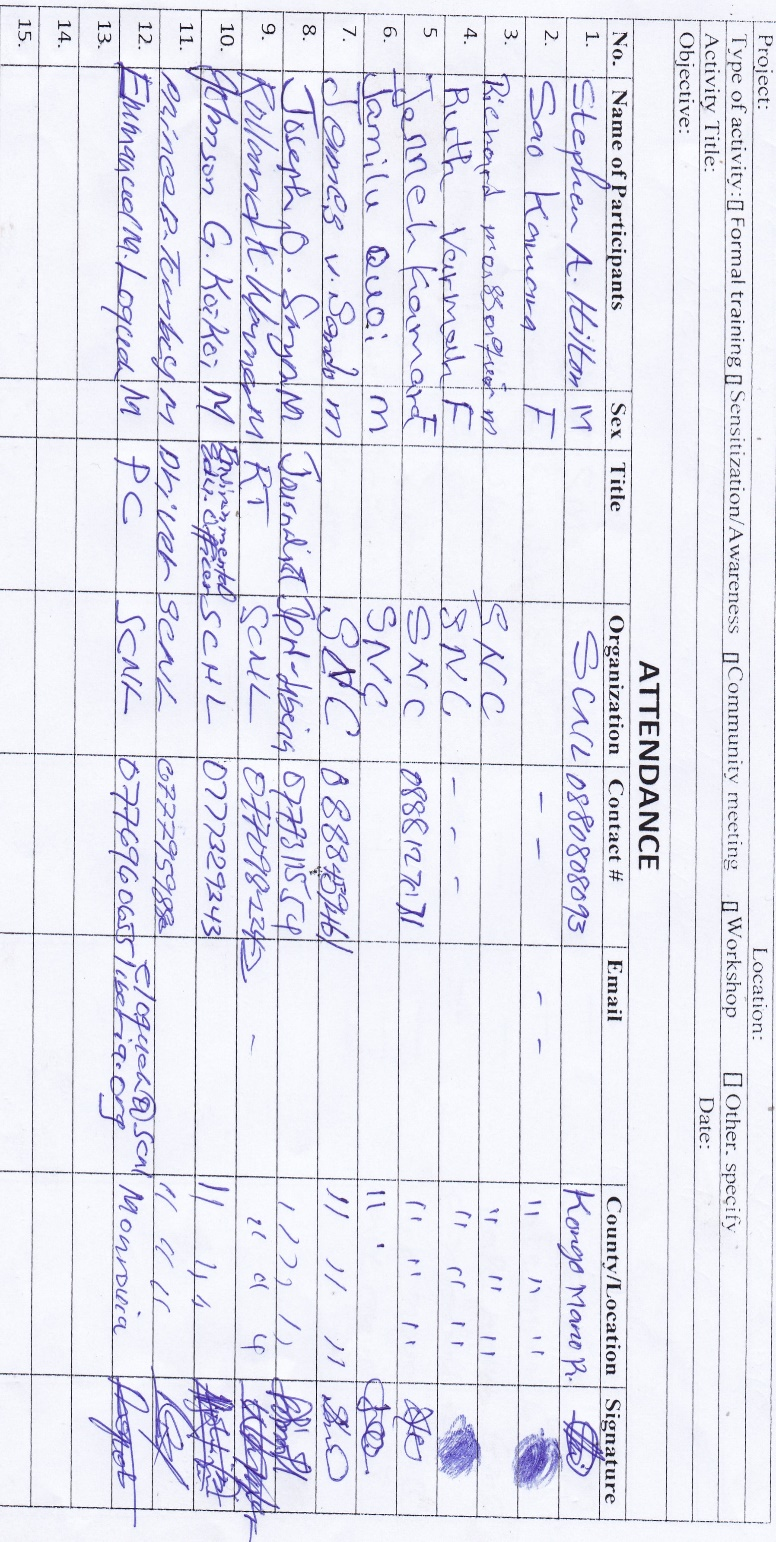 Project: Location:
Type of activity: [] Formal training [] Sensitization/Awareness [] Community meeting [] Workshop [] Other, specify
Activity Title: Date:
Objective:
ATTENDANCE
No. Name of Participants Sex Title Organization Contact # Email County/Location Signature
1. Stephen A. Hilton M SCNL 0880808093 Kongo Mano R.
2. Sao Kamara F - - - - " " "
3. Richard massaquoi m SNC " " "
4. Ruth Varmah F SNC - - - " " "
5 Jenneh Kamara F SNC 0888127171 " " "
6. Jamilu Quoi m SNC "
7. James V. m SNC " " "
8. Joseph D. M Journalist 077731554
9. Rolland K. M RT SCNL - " " "
10. Johnson G. Koikoi M Environmental Edu. Officer SCNL 0777329343 " "
11. M Driver SCNL " " "
12. Emmanuel M. Loqueh M PC SCNL 0776960655 eloqueh@scnlliberia.org Monrovia
13.
14.
15.